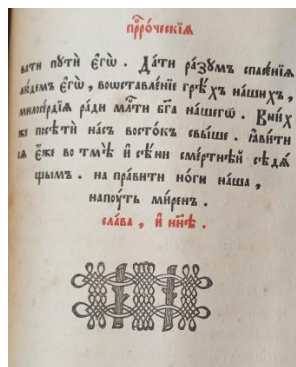 прⷪ҇ро́ческїѧ
вати пꙋтѝ є҆гѡ̀. Да́ти ра́зꙋмъ спасе́нїѧ
лю́демъ є҆гѡ̀, воѡставле́нїе грѣ́хъ на́шихъ,
милосе́рдїѧ ра́ди млⷭ҇ти бг҃а на́шегѡ. Вни́х
же посѣтѝ на́съ восто́къ свы́ше. ꙗ҆ви́ти
сѧ є҆́же во тмѣ̀ и҆ сѣ́ни сме́ртнѣй сѣдѧ́
щымъ. на пра́вити но́ги на́ша,
напоу́ть ми́ренъ.
сла́ва, и҆ нн҃ѣ.